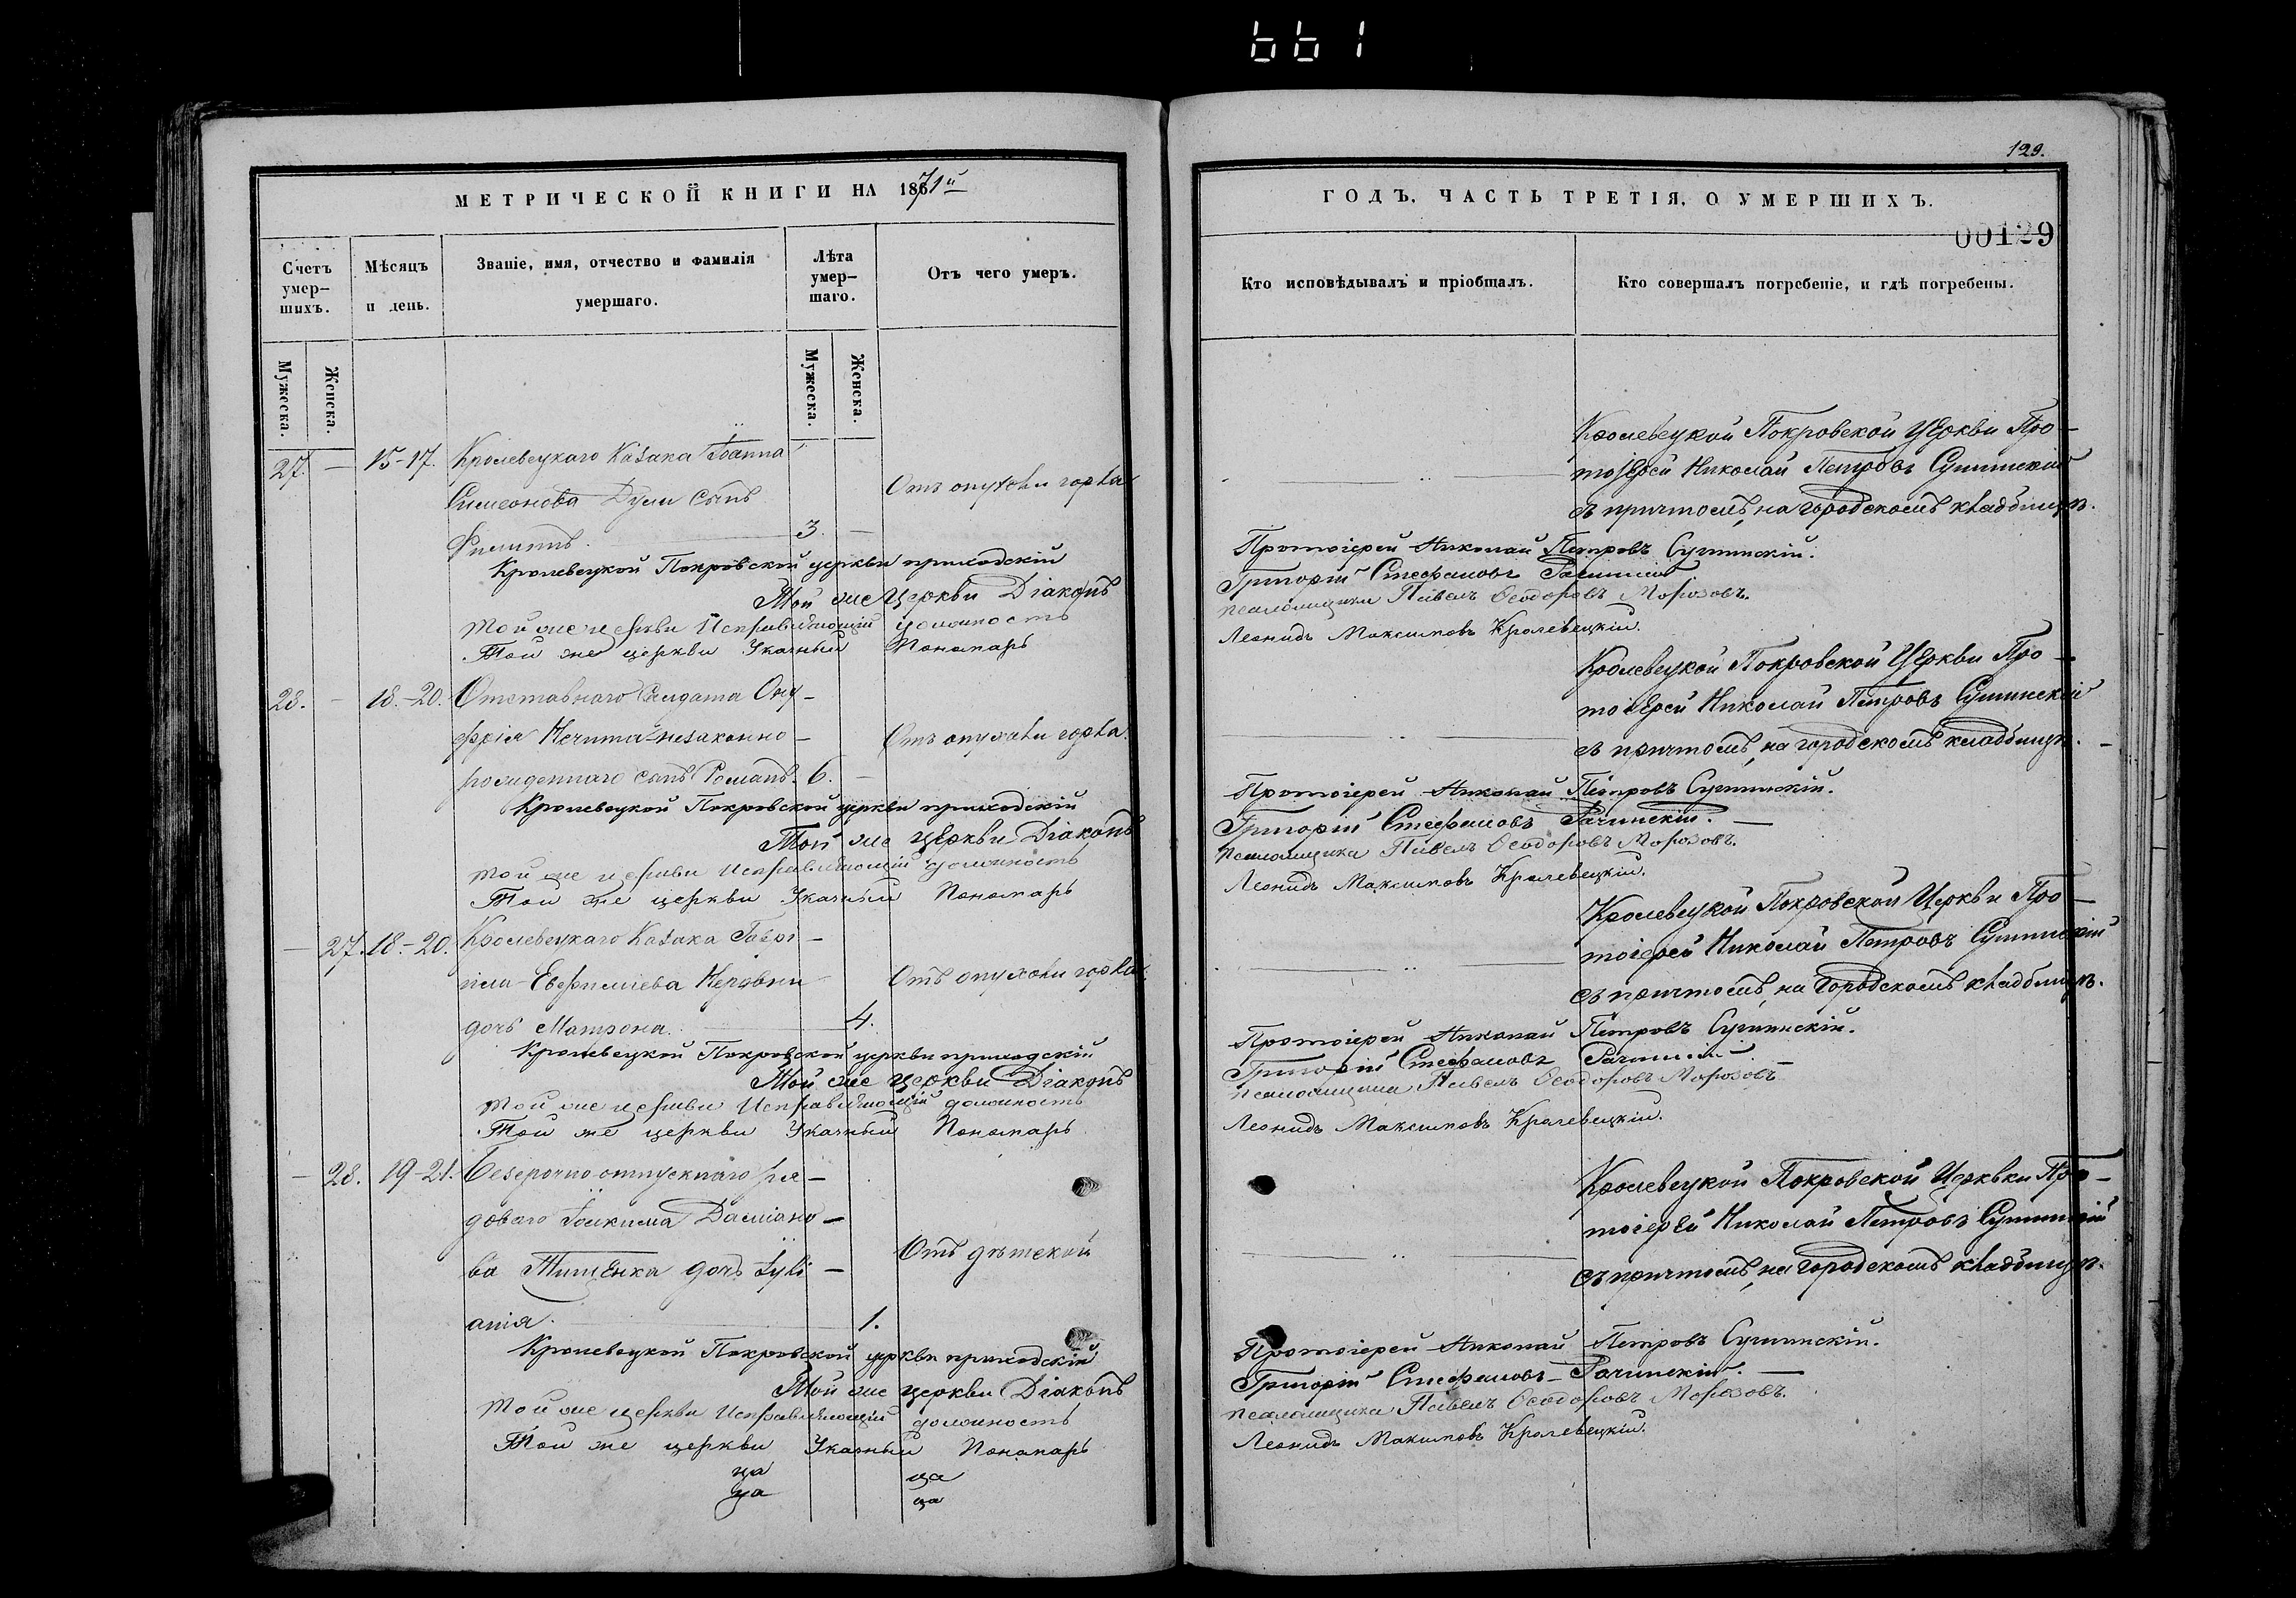 661
МЕТРИЧЕСКОЙ КНИГИ НА 1871й
Счетъ умер-шихъ.
Мужеска.
Женска.
Мѣсяцъ и день.
Званіе, имя, отчество и фамилія умершаго.
Лѣта умер-шаго.
Мужеска.
Женска.
Отъ чего умеръ.
27. — 15-17. Кролевецкаго Козака Іоанна
Симеонова Дули сынъ
Отъ опухоли горла
Филиппъ. 3. —
Кролевецкой Покровской церкви приходскій
Той же церкви Діаконъ
той же церкви Исправляющій должность
Той же церкви Указный Пономарь
28. — 18.-20. Отставнаго Солдата Ону-
фрія Нечипа незаконно-
Отъ опухоли горла.
рожденнаго сынъ Романъ. 6. —
Кролевецкой Покровской церкви приходскій
Той же церкви Діаконъ
той же церкви Исправляющій должность
Той же церкви Указный Пономарь
— 27. 18.-20. Кролевецкаго Козака Гаврі-
ила Евфиміева
Отъ опухоли горла.
дочь Матрона. 4.
Кролевецкой Покровской церкви приходскій
Той же церкви Діаконъ
той же церкви Исправляющій должность
Той же церкви Указный Пономарь
— 28. 19-21. Безсрочно отпускнаго ря-
доваго Іоакима Даміано-
ва Тищенка дочь Іулі-
Отъ дѣтской
анія. 1.
Кролевецкой Покровской церкви приходскій
Той же церкви Діаконъ
той же церкви Исправляющій должность
Той же церкви Указный Пономарь
ца ца
ца ца
129.
ГОДЪ, ЧАСТЬ ТРЕТІЯ, О УМЕРШИХЪ.
00129
Кто исповѣдывалъ и пріобщалъ.
Кто совершалъ погребеніе, и гдѣ погребены.
Кролевецкой Покровской Церкви Про-
тоіерей Николай Петровъ Сулимскій
съ причтомъ, на городскомъ кладбищѣ.
Протоіерей Николай Петровъ Сулимскій.
Григорій Стефановъ Рачинскій
псаломщика Павелъ Ѳеодоровъ Морозовъ.
Леонидъ Максимовъ Кролевецкій.
Кролевецкой Покровской Церкви Про-
тоіерей Николай Петровъ Сулимскій
съ причтомъ, на городскомъ кладбищѣ. —
Протоіерей Николай Петровъ Сулимскій.
Григорій Стефановъ Рачинскій. —
псаломщика Павелъ Ѳеодоровъ Морозовъ.
Леонидъ Максимовъ Кролевецкій.
Кролевецкой Покровской Церкви Про-
тоіерей Николай Петровъ Сулимскій
съ причтомъ, на городскомъ кладбищѣ.
Протоіерей Николай Петровъ Сулимскій.
Григорій Стефановъ Рачинскій. —
псаломщика Павелъ Ѳеодоровъ Морозовъ
Леонидъ Максимовъ Кролевецкій.
Кролевецкой Покровской Церквки Про-
тоіерей Николай Петровъ Сулимскій
съ причтомъ, на городскомъ кладбищѣ.
Протоіерей Николай Петровъ Сулимскій.
Григорій Стефановъ Рачинскій. —
псаломщика Павелъ Ѳеодоровъ Морозовъ.
Леонидъ Макимовъ Кролевецкій.